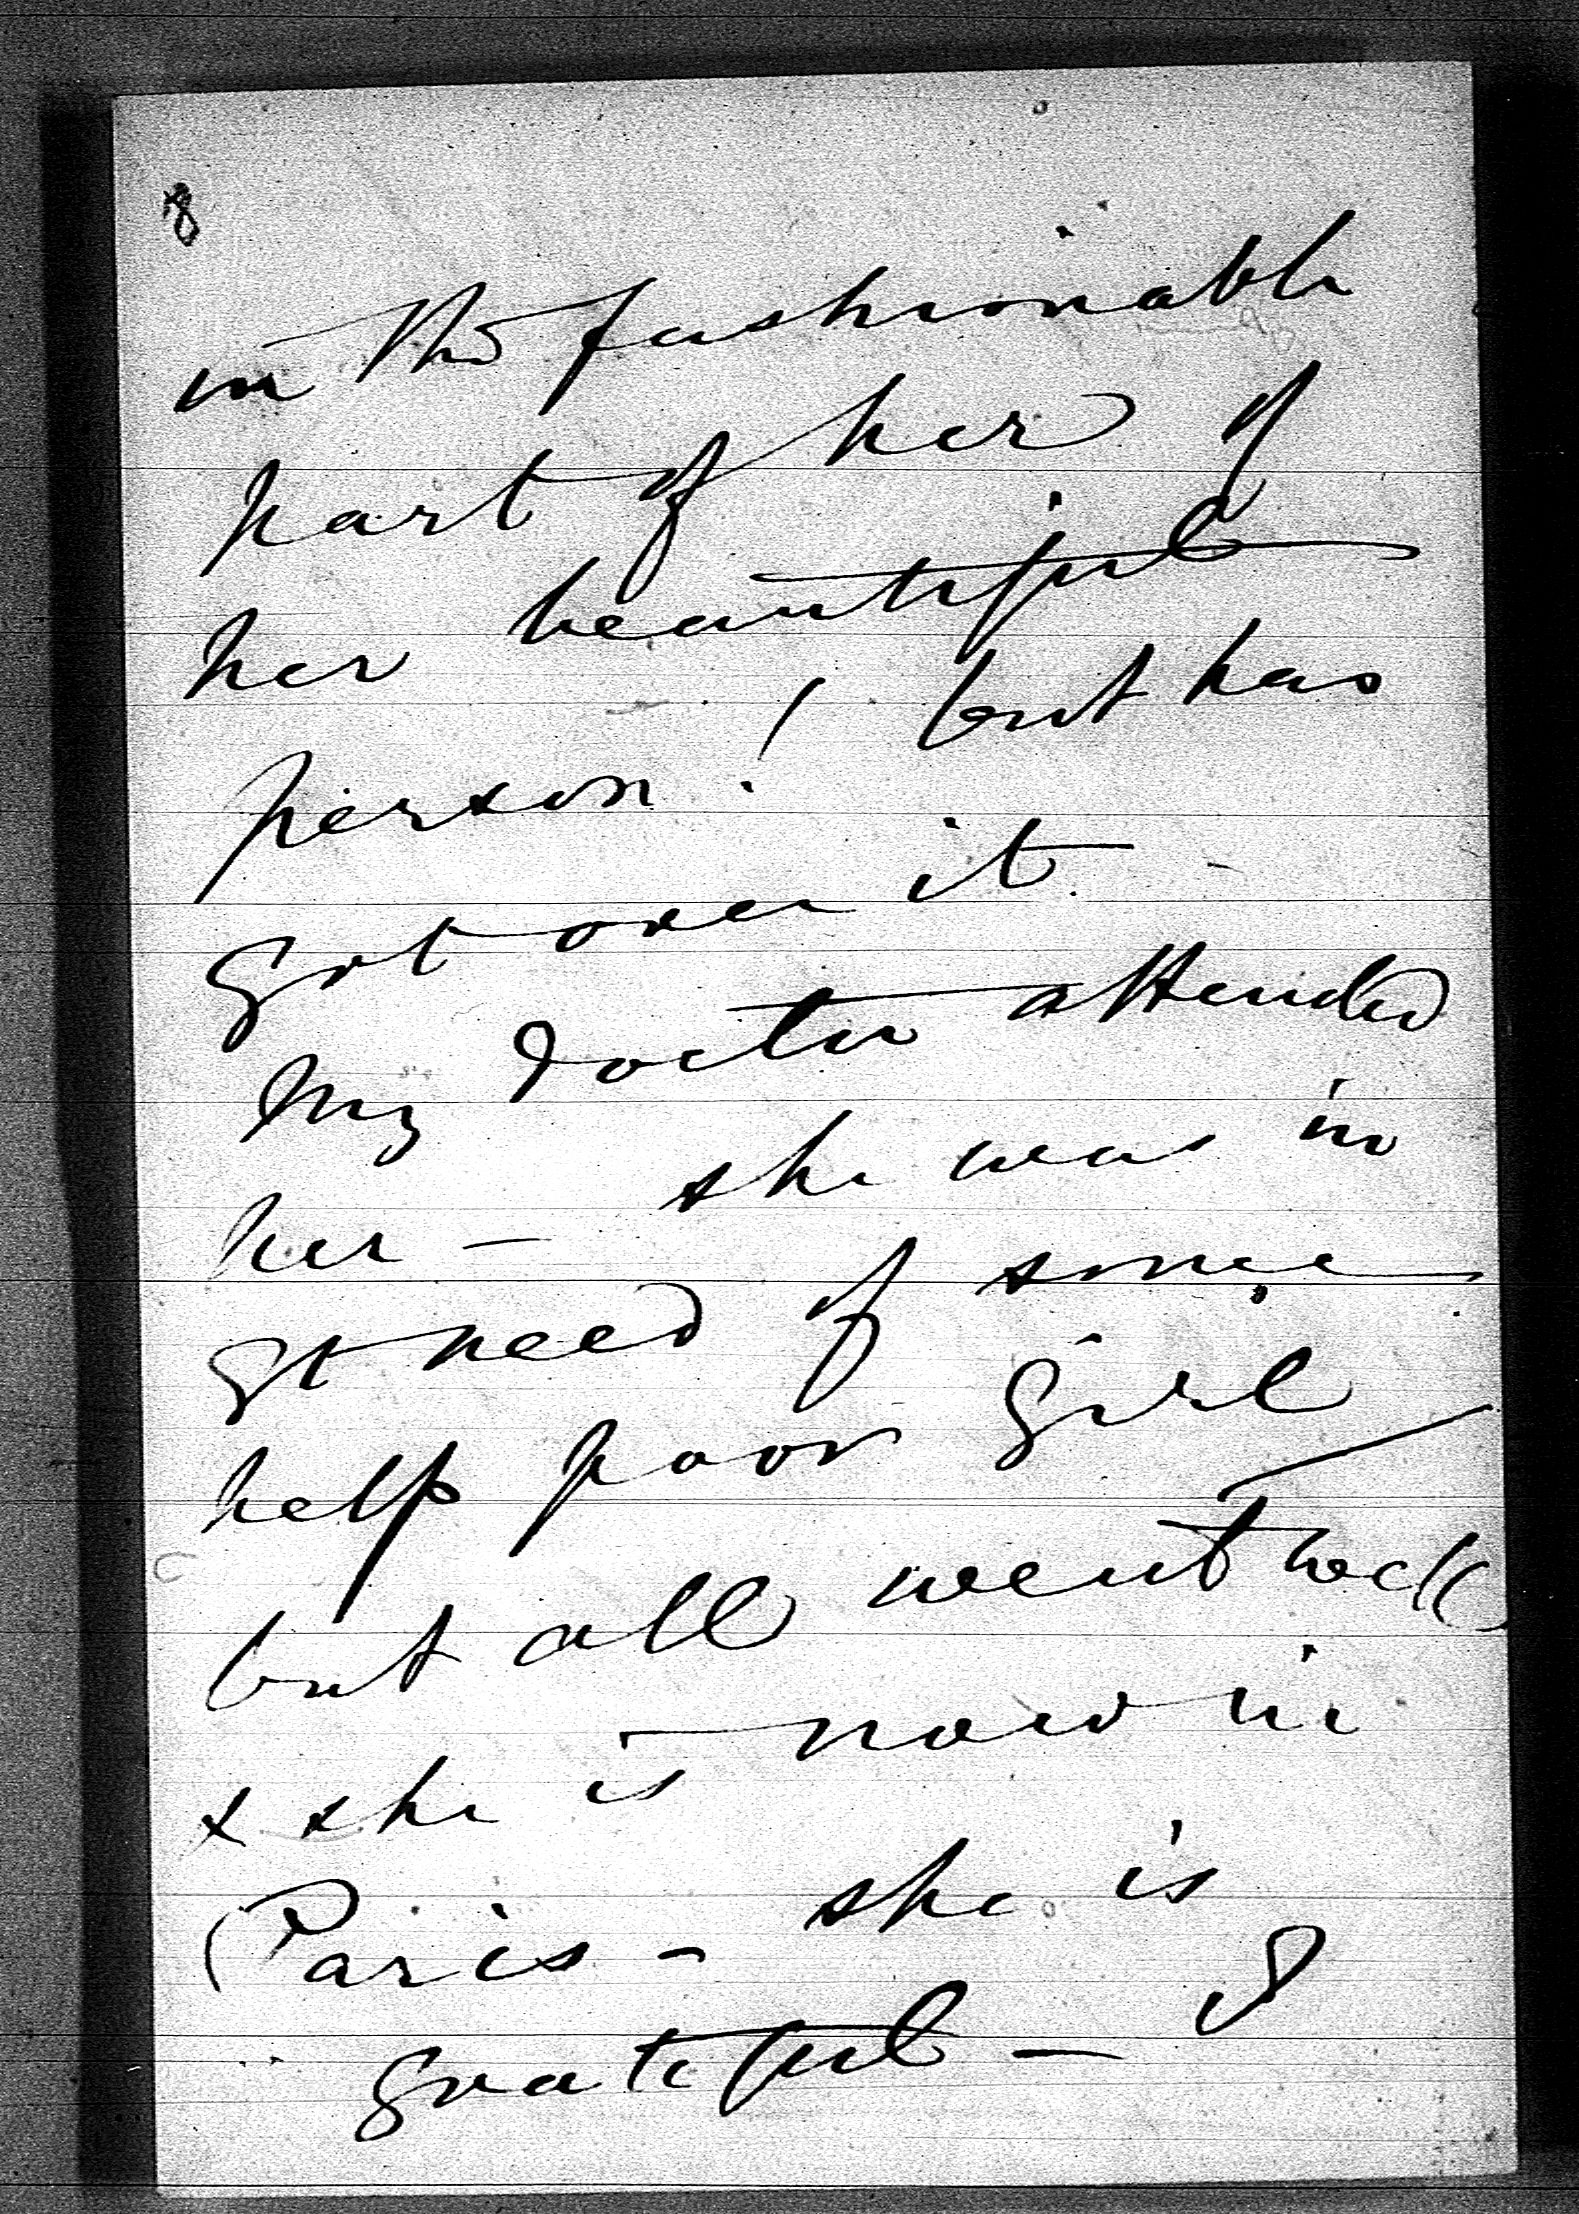 8
in the fashionable
part of her of
her beautiful
person! but has
got over it
My doctor attended
her — she was in
gt need of some
help poor girl
but all went well
& she is now in
Paris — she is
grateful — I